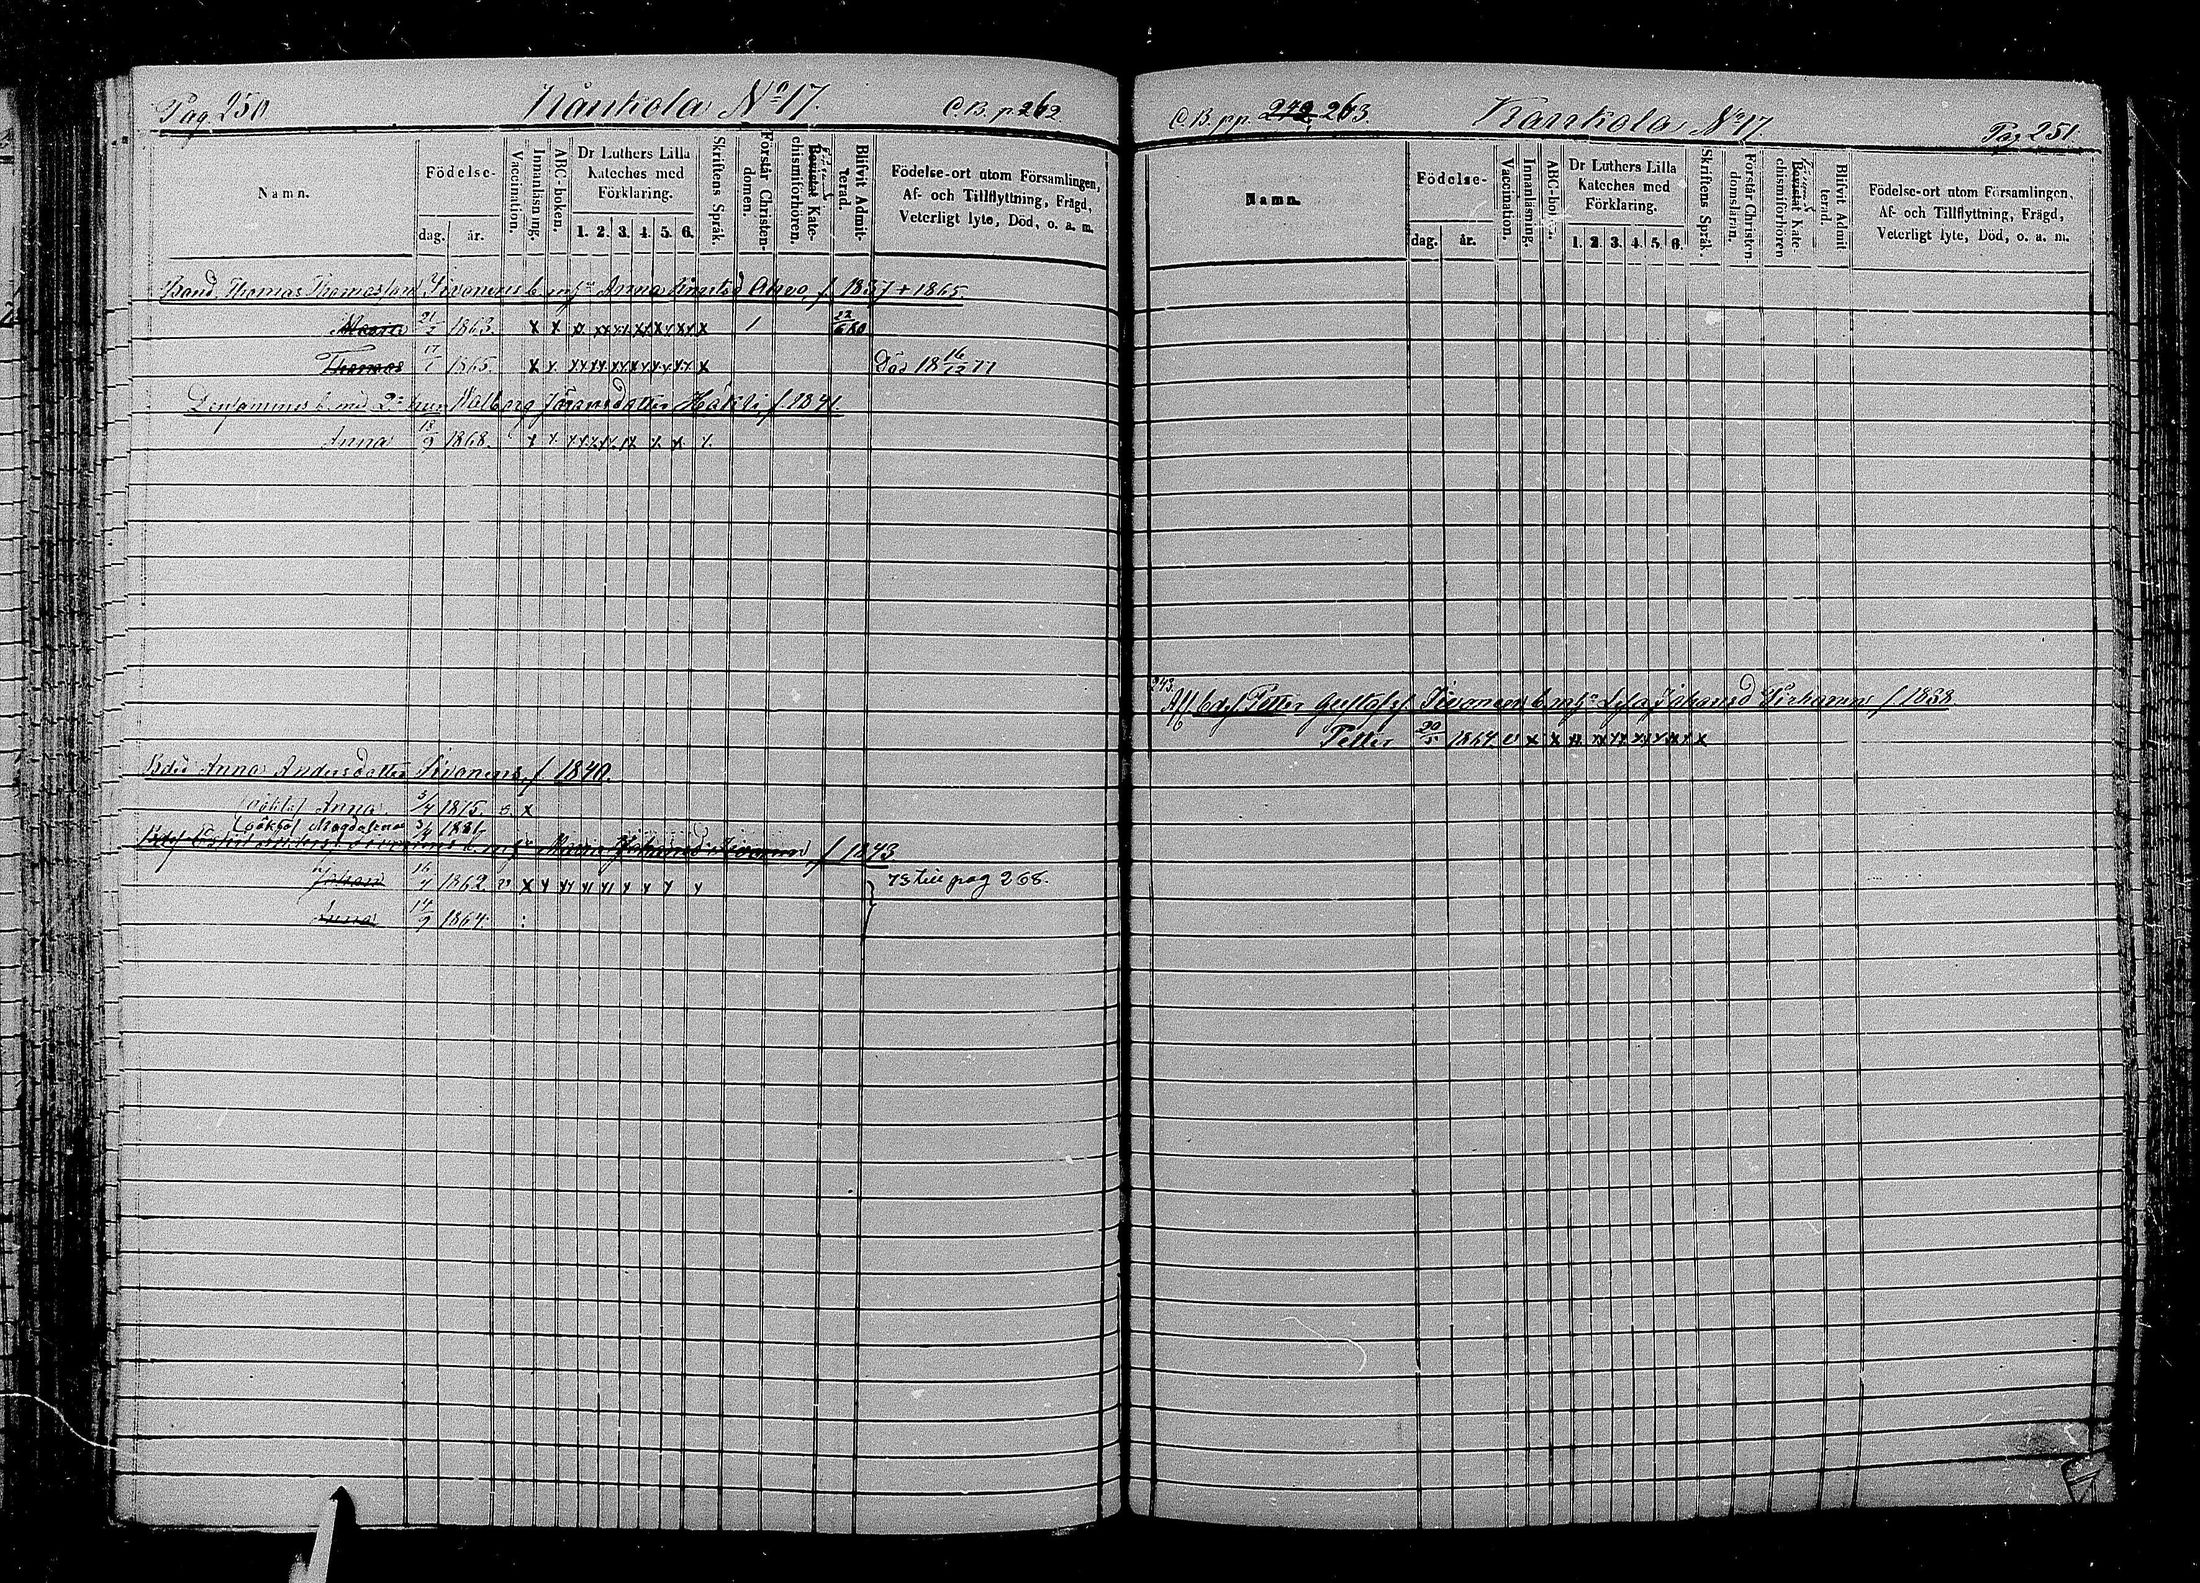 Pag. 250 Kankola No 17. C.B. p. 262
Namn.
Födelse-
dag. år.
Vaccination.
Innanläsning.
ABC-boken.
Dr Luthers Lilla
Kateches med
Förklaring.
1. 2. 3. 4. 5. 6.
Skriftens Språk.
Förstår Christen-
domen.
Kate-
chismiförhören.
Blifvit Admit-
terad.
Födelse-ort utom Församlingen,
Af- och Tillflyttning, Frägd,
Veterligt lyte, Död, o. a. m.
Bond. Thomas Thomasson Sivonens b. m. h. Anna f. 1837 + 1865.
Maria 21/2 1863. x x x xx xx xx xx xx x 1 22/6 80
Thomas 17/1 1865. x x xx xx xx xx xx xx x Död 18 16/12 77
Densammes b. med 2:a hun Walborg Jöransdotter Häkli, f. 1841
Anna 13/9 1868. x x
Anna Andersdotter Sivonens f. 1840.
Anna 3/4 1875. v. x
Magdalena 3/4 1881
Maria Johansd. f. 1843
Johan 16/4 1862. v x 78 till pag 268.
Anna 14/9 1864.
C.B. pp. 242, 263. Kankola No 17. Pag. 251.
Namn.
Födelse-
dag. år.
Vaccination.
Innanläsning.
ABC-boken.
Dr Luthers Lilla
Kateches med
Förklaring.
1. 2. 3. 4. 5. 6.
Skriftens Språk.
Förstår Christen
domslärn.
Kate
chismiförhören
Blifvit Admit
terad.
Födelse-ort utom Församlingen,
Af- och Tillflyttning, Frägd,
Veterligt lyte, Död, o. a. m.
243.
Petter Gustafss. Sivonens b. m. h. Johansd. f. 1838
Petter 20/5 1864 v x x